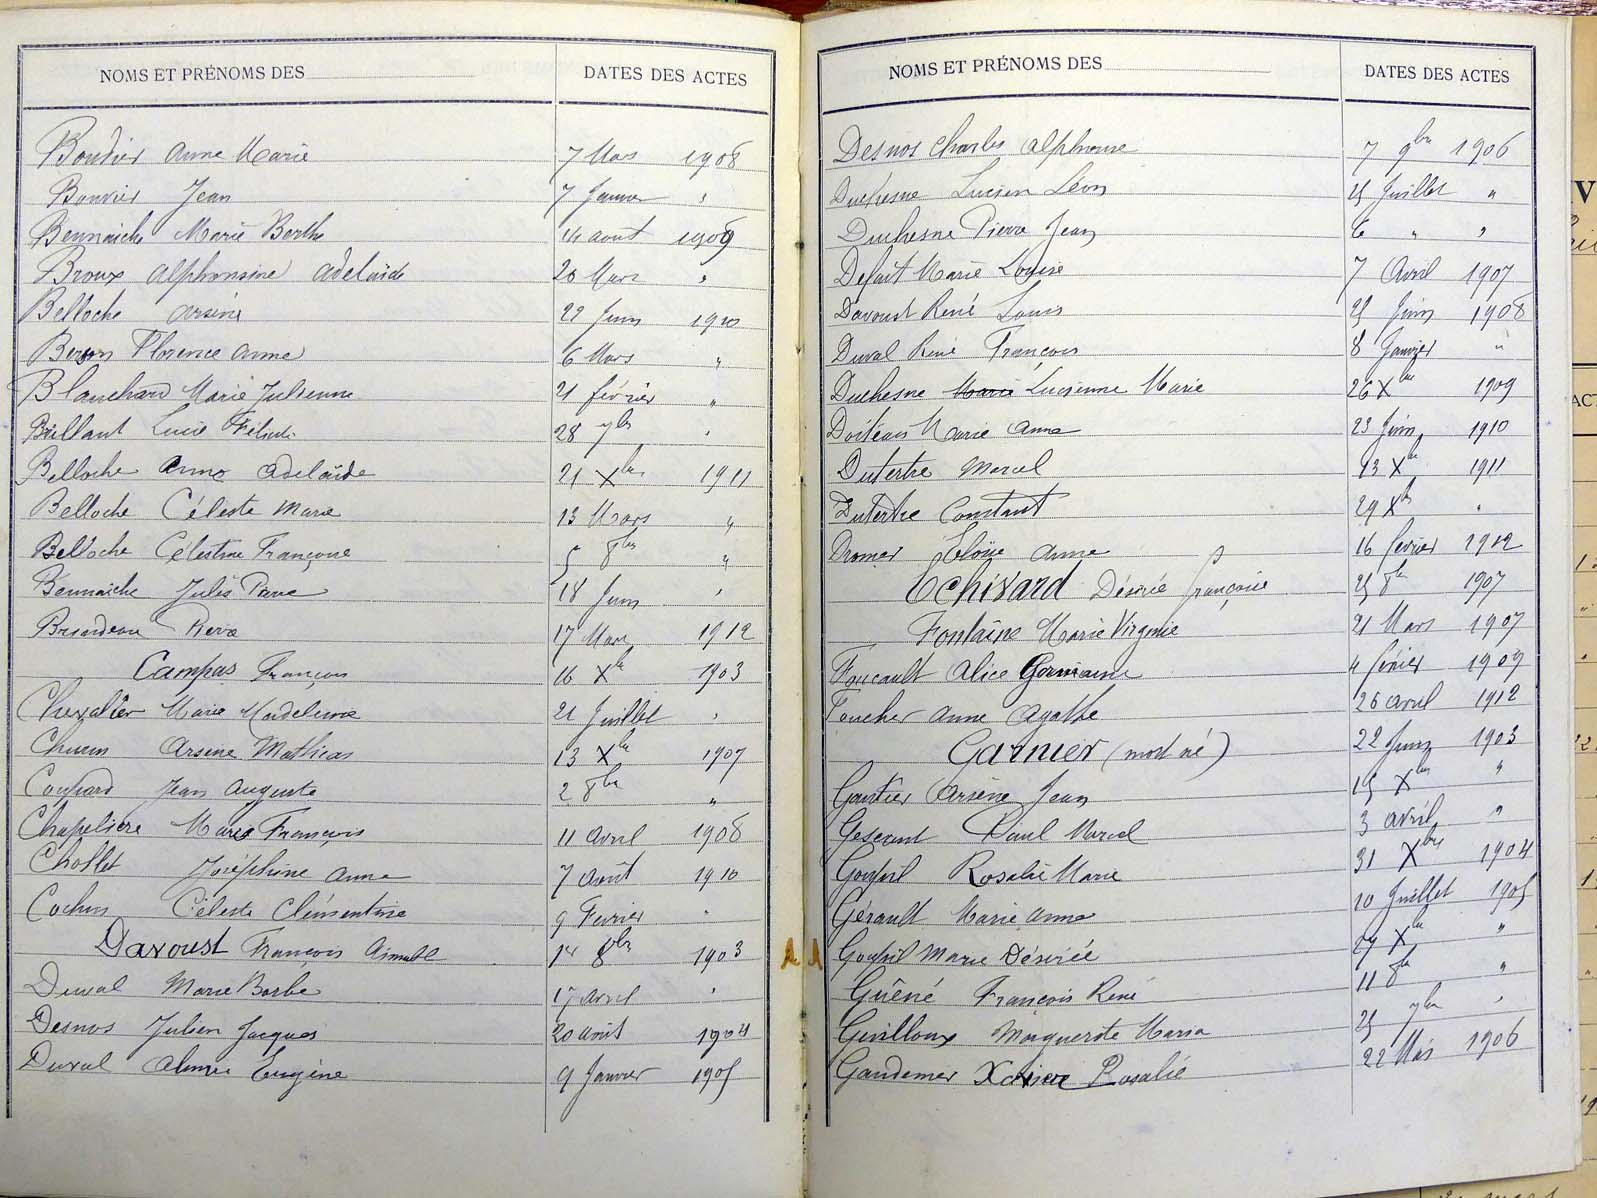 NOMS ET PRÉNOMS DES DATES DES ACTES
Boudier Anne Marie 7 Mars 1908
Bouvier Jean 7 Janvier "
Bennaiche Marie Berthe 14 août 1909
Broux Alphonsine Adelaïde 20 Mars "
Belloche Arsène 22 Juin 1910
Florence Anne 6 Mars "
Blanchard Marie Julienne 21 février "
Brillant Lucie 28 "
Belloche Anne Adelaïde 21 Xbre 1911
Belloche Céleste Marie 13 Mars "
Belloche Célestine Françoise 5 8bre "
Bennaiche Jules Pierre 18 Juin "
Briandeau Pierre 17 Mars 1912
Campas François 16 Xbre 1903
Chevalier Marie Madeleine 21 Juillet "
Arsène Mathias 13 Xbre 1907
Coupard Jean Auguste 2 8bre "
Chapelière Marie François 11 Avril 1908
Chollet Joséphine Anne 7 août 1910
Cochin Céleste Clémentine 9 Fevrier "
Davoust François Aimable 14 8bre 1903
Duval Marie Barbe 17 avril "
Desnos Julien Jacques 20 août 1904
Duval Aimée Eugène 9 Janvier 1905
NOMS ET PRÉNOMS DES DATES DES ACTES
Desnos Charles Alphonse 7 9bre 1906
Duchesne Lucien Léon 25 Juillet "
Duchesne Pierre Jean 6 " "
Defait Marie Louise 7 Avril 1907
Davoust René Louis 25 Juin 1908
Duval René François 8 Janvier "
Duchesne Marie Lucienne Marie 26 Xbre 1909
Marie Anna 23 Juin 1910
Dutertre Marcel 13 Xbre 1911
Dutertre Constant 29 Xbre "
Dromer Anne 16 fevrier 1912
Echivard Désirée françoise 25 8bre 1907
Fontaine Marie Virginie 21 Mars 1907
Foucault Alice Germaine 4 février 1909
Foucher Anne Agathe 26 avril 1912
Garnier (mort né) 22 Juin 1903
Gautier Arsène Jean 15 Xbre "
Paul Marcel 3 avril "
Goupil Rosalie Marie 31 Xbre 1904
Gérault Marie Anne 10 Juillet 1905
Goupil Marie Désirée 27 Xbre "
Guéné François René 11 8bre "
Guilloux Marguerite Maria 25 "
Gandemer Rosalie 22 Mai 1906